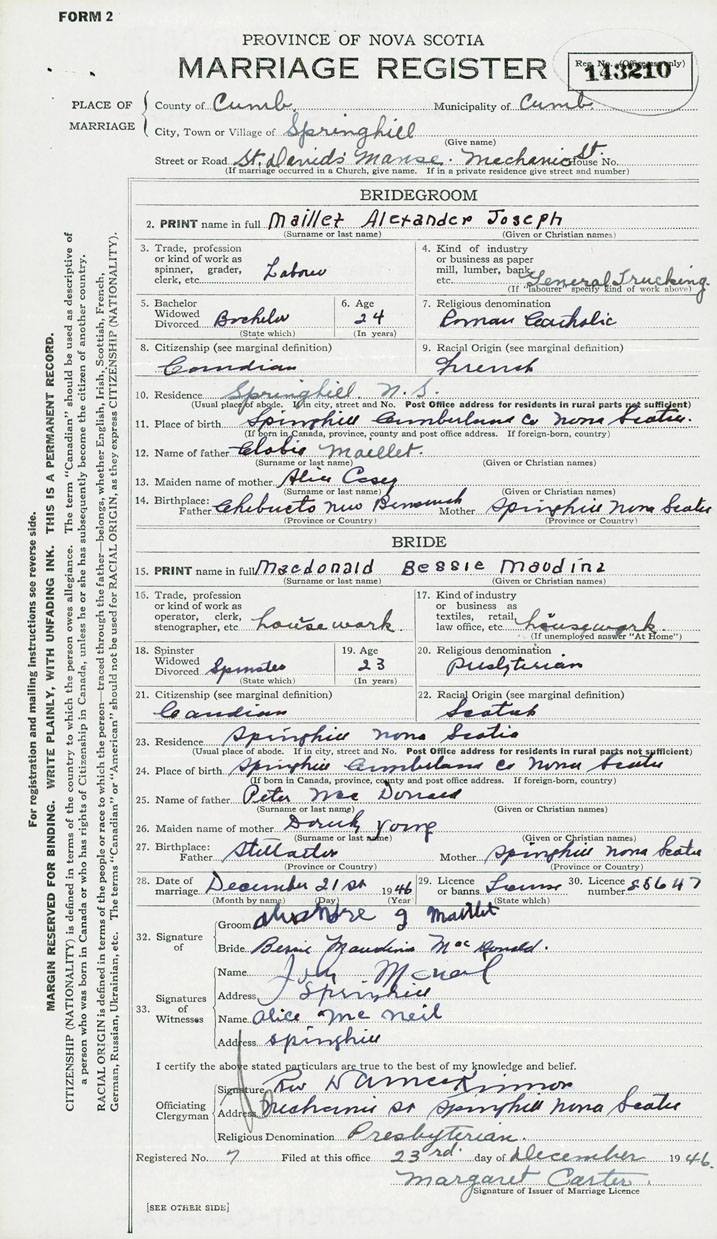 FORM 2
PROVINCE OF NOVA SCOTIA
MARRIAGE REGISTER
Reg. No. (Office use only)
143210
PLACE OF MARRIAGE
County of Cumb. Municipality of Cumb.
City, Town or Village of Springhill
(Give name)
Street or Road St. Davids Manse. Mechanic St. House No.
(If marriage occurred in a Church, give name. If in a private residence give street and number)
BRIDEGROOM
2. PRINT name in full Maillet Alexander Joseph
(Surname or last name) (Given or Christian names)
3. Trade, profession or kind of work as spinner, grader, clerk, etc. Labour
4. Kind of industry or business as paper mill, lumber, bank, etc. General Trucking.
(If "labourer" specify kind of work above)
5. Bachelor Widowed Divorced Bachelor
(State which)
6. Age 24
(In years)
7. Religious denomination Roman Catholic
8. Citizenship (see marginal definition) Canadian
9. Racial Origin (see marginal definition) French
10. Residence Springhill N.S.
(Usual place of abode. If in city, street and No. Post Office address for residents in rural parts not sufficient)
11. Place of birth Spinghill Cumberland Co Nova Scotia.
(If born in Canada, province, county and post office address. If foreign-born, country)
12. Name of father Maillet.
(Surname or last name) (Given or Christian names)
13. Maiden name of mother Alice Casey
(Surname or last name) (Given or Christian names)
14. Birthplace: Father New Mother Spinghill Nova Scotia
(Province or Country) (Province or Country)
BRIDE
15. PRINT name in full Macdonald Bessie Maudina
(Surname or last name) (Given or Christian names)
16. Trade, profession or kind of work as operator, clerk, stenographer, etc. housework
17. Kind of industry or business as textiles, retail, law office, etc. housework
(If unemployed answer "At Home")
18. Spinster Widowed Divorced Spinster
(State which)
19. Age 23
(In years)
20. Religious denomination Presbyterian
21. Citizenship (see marginal definition) Canadian
22. Racial Origin (see marginal definition) Scotch
23. Residence Spinghill Nova Scotia
(Usual place of abode. If in city, street and No. Post Office address for residents in rural parts not sufficient)
24. Place of birth Spinghill Cumberland Co Nova Scotia
(If born in Canada, province, county and post office address. If foreign-born, country)
25. Name of father Peter Mac Donald
(Surname or last name) (Given or Christian names)
26. Maiden name of mother Young
(Surname or last name) (Given or Christian names)
27. Birthplace: Father Mother Spinghill Nova Scotia
(Province or Country) (Province or Country)
28. Date of marriage December 21st 1946
(Month by name) (Day) (Year)
29. Licence or banns License
(State which)
30. Licence number 85647
32. Signature of
Groom J Maillet
Bride Bessie Maudina MacDonald.
33. Signatures of Witnesses
Name
Address Springhill
Name Alice Mc Neil
Address Spinghill
I certify the above stated particulars are true to the best of my knowledge and belief.
Officiating Clergyman
Signature Rev
Address Mechanic St Spinghill Nova Scotia
Religious Denomination Presbyterian.
Registered No. 7 Filed at this office 23rd. day of December 1946.
Margaret Carter.
Signature of Issuer of Marriage Licence
[SEE OTHER SIDE]
For registration and mailing instructions see reverse side.
MARGIN RESERVED FOR BINDING. WRITE PLAINLY, WITH UNFADING INK. THIS IS A PERMANENT RECORD.
CITIZENSHIP (NATIONALITY) is defined in terms of the country to which the person owes allegiance. The term "Canadian" should be used as descriptive of
a person who was born in Canada or who has rights of Citizenship in Canada, unless he or she has subsequently become the citizen of another country.
RACIAL ORIGIN is defined in terms of the people or race to which the person—traced through the father—belongs, whether English, Irish, Scottish, French,
German, Russian, Ukrainian, etc. The terms "Canadian" or "American" should not be used for RACIAL ORIGIN, as they express CITIZENSHIP (NATIONALITY).